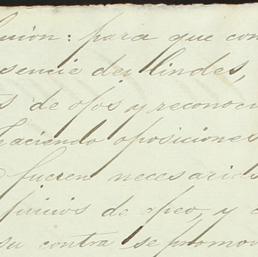 sion: para que con
sencie deslindes,
s de ojos y reconoci
haciendo oposiciones
fueren necesarios
juicios de apeo y d
su contra se promov